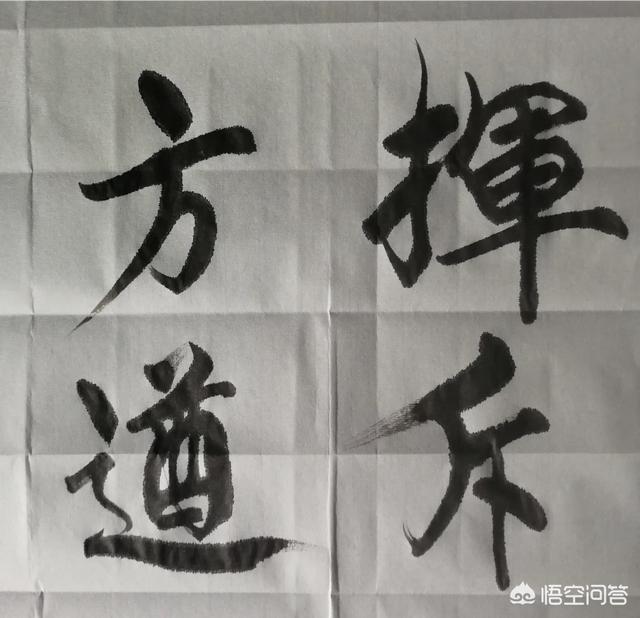 揮斥
方遒
悟空问答